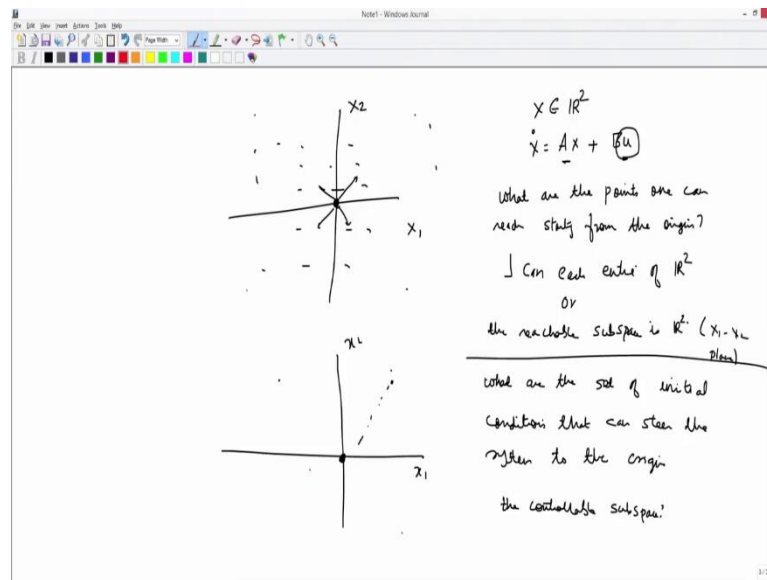 Note1 - Windows Journal
File Edit View Insert Actions Tools Help
Page Width
B I
x2
x1
x ∈ IR²
ẋ = Ax + Bu
what are the points one can
reach starty from the origin?
I can each entire of IR²
or
the reachable subspace is IR² (x1-x2
plane)
x2
x1
what are the set of initial
conditions that can steer the
system to the origin
the controllable subspace!